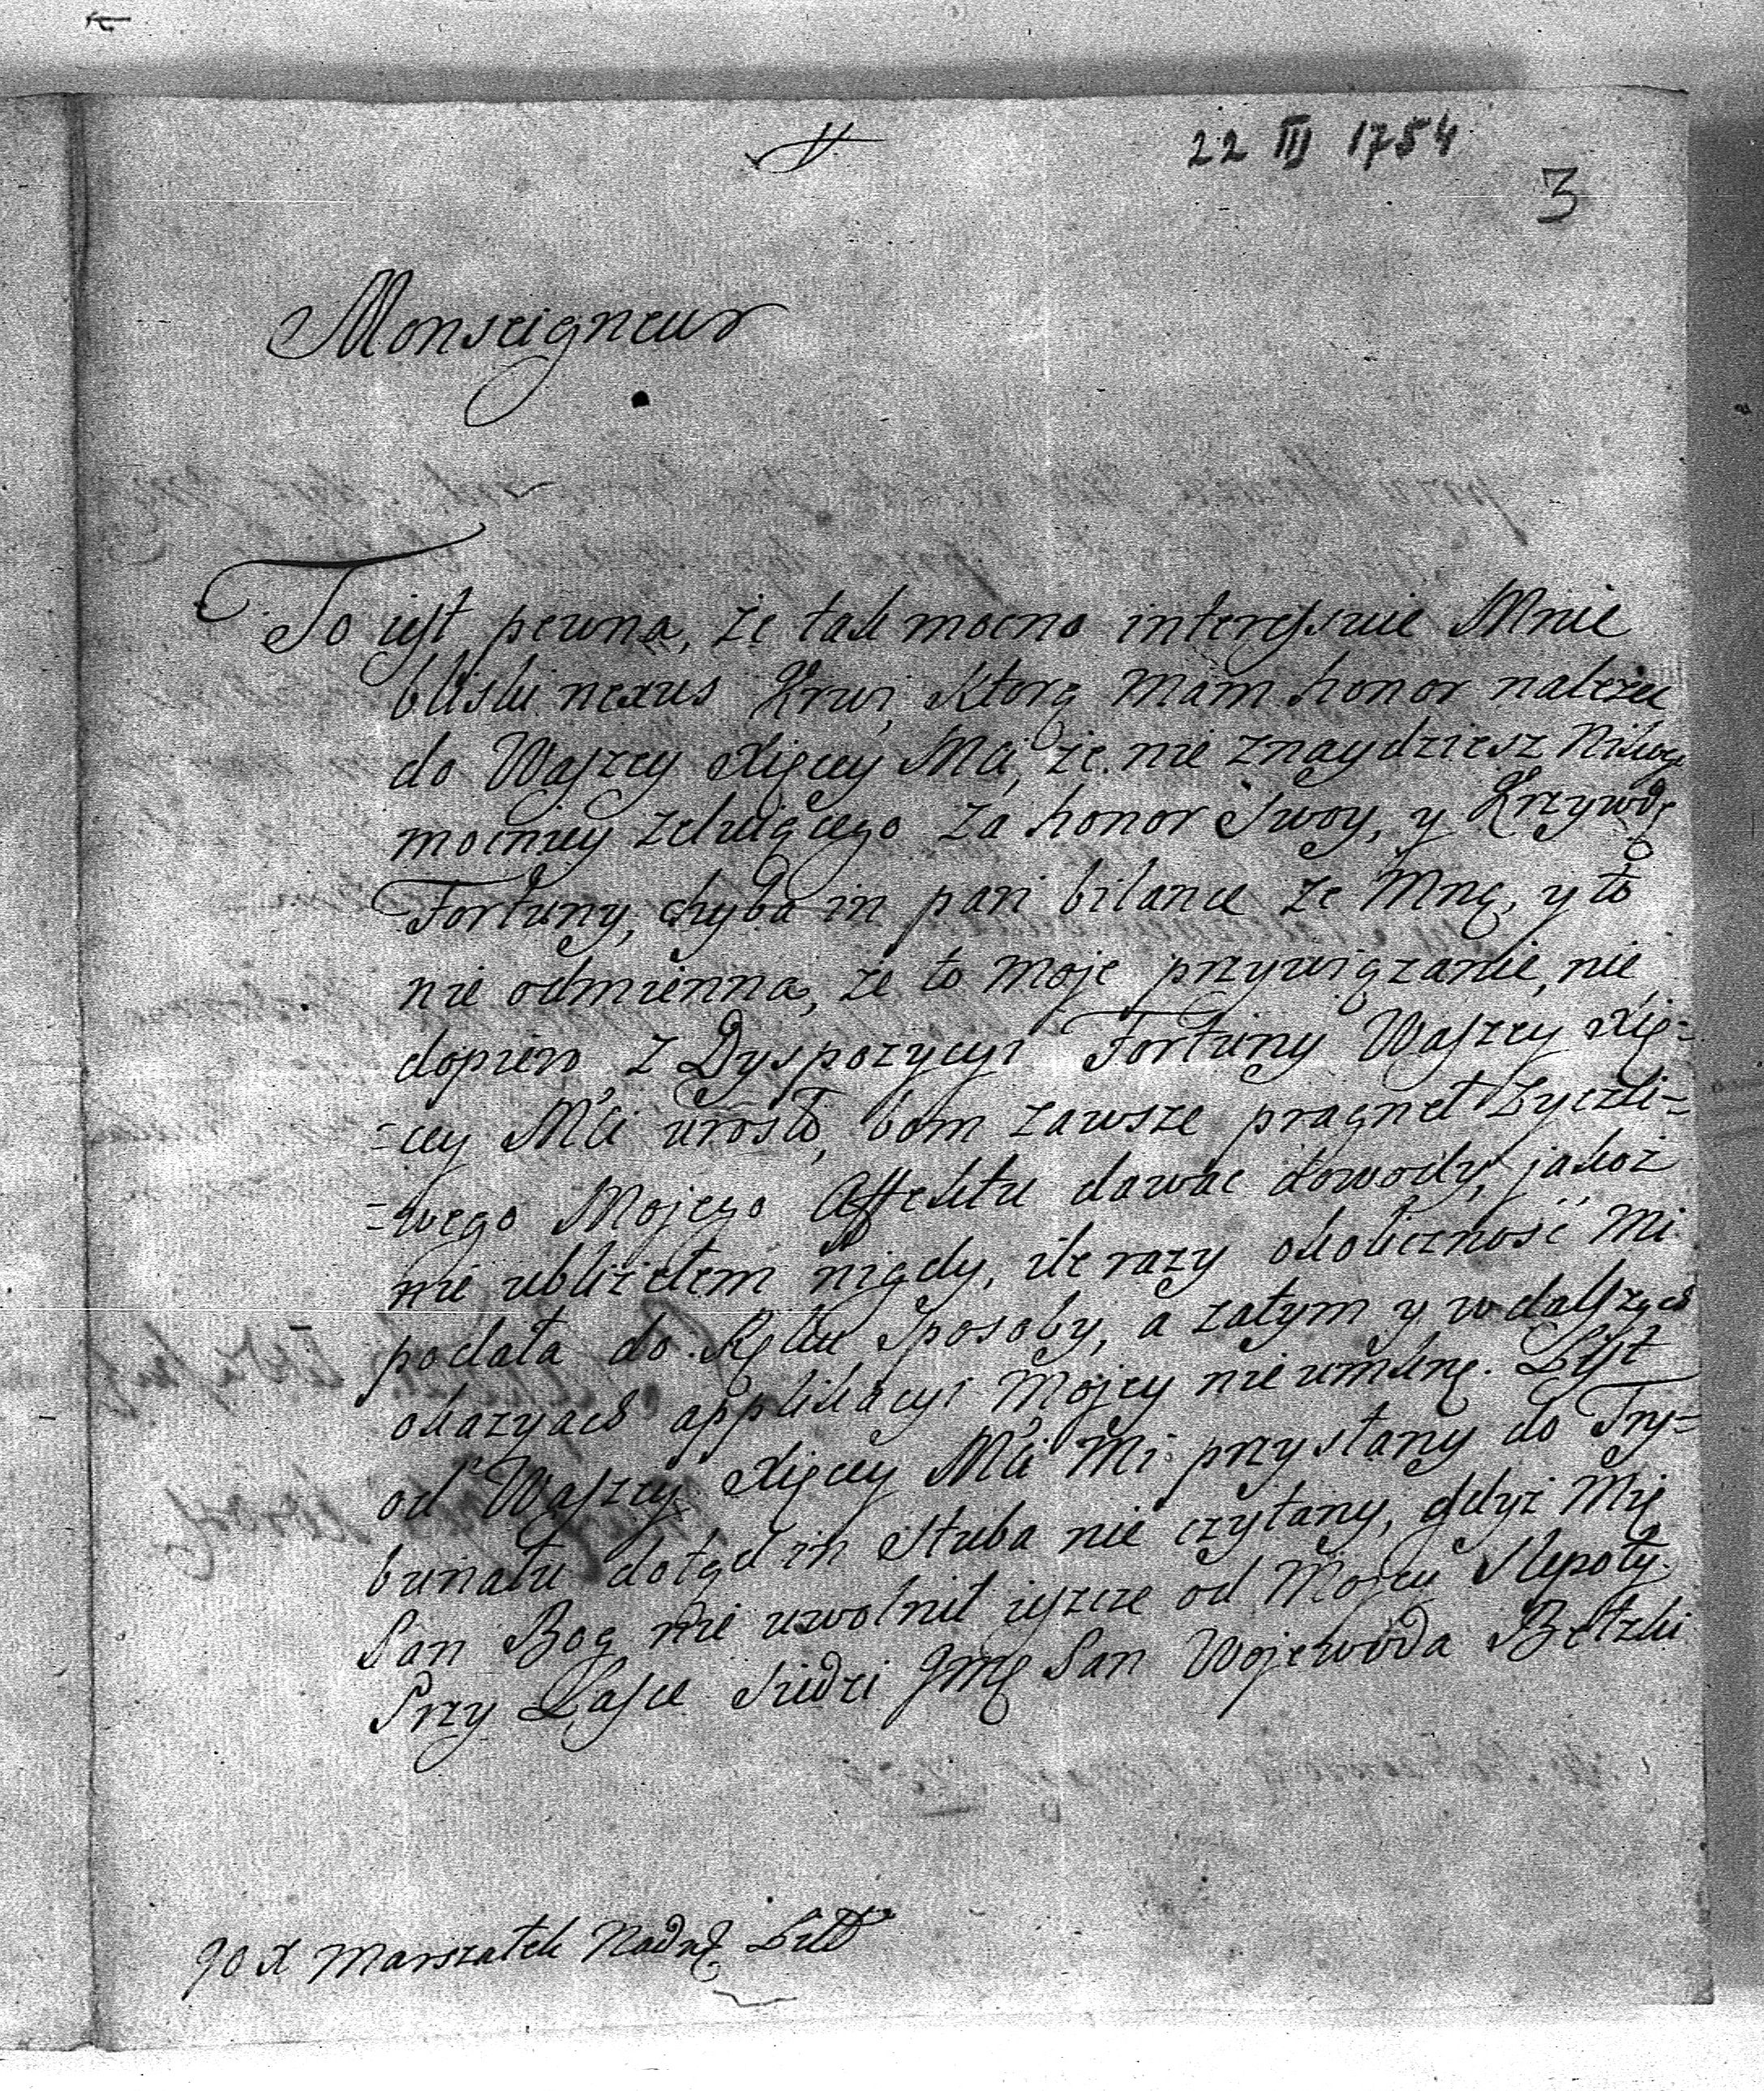 22 III 1754
3
Monseigneur
To iest pewna, że tak mocno interessuie Mnie
bliski nexus Krwi, Ktorą mam honor nalezec
do Waszey Xięcey Mci, że nie znaydziesz Nikogo
mocniey zeluiącego za honor Swoy, y Krzywdę
Fortuny, chyba in pari bilance ze Mną, y to
nie odmienna, że to moje przywiązanie, nie
dopiero z Dyspozycyi Fortuny Waszey Xię=
=cey Mci urosło, bom zawsze pragneł Zyczli=
=wego Mojego Affektu dawac dowody, jakoż
nie ubliżełem nigdy, ile razy okoliczność mi
podała do Ręku Sposoby, a zatym y w dalszych
okazyach applikacyi Mojey nie umknę. List
od Waszey Xięcey Mci Mi przysłany do Try=
bunału dotąd in Stuba nie czytany, gdyż Mię
Pan Bog nie uwolnił ieszcze od Mojey Slepoty
Przy Lasce Siedzi Jmć Pan Wojewoda Bełzki
JO X Marszałek Nadny Litt